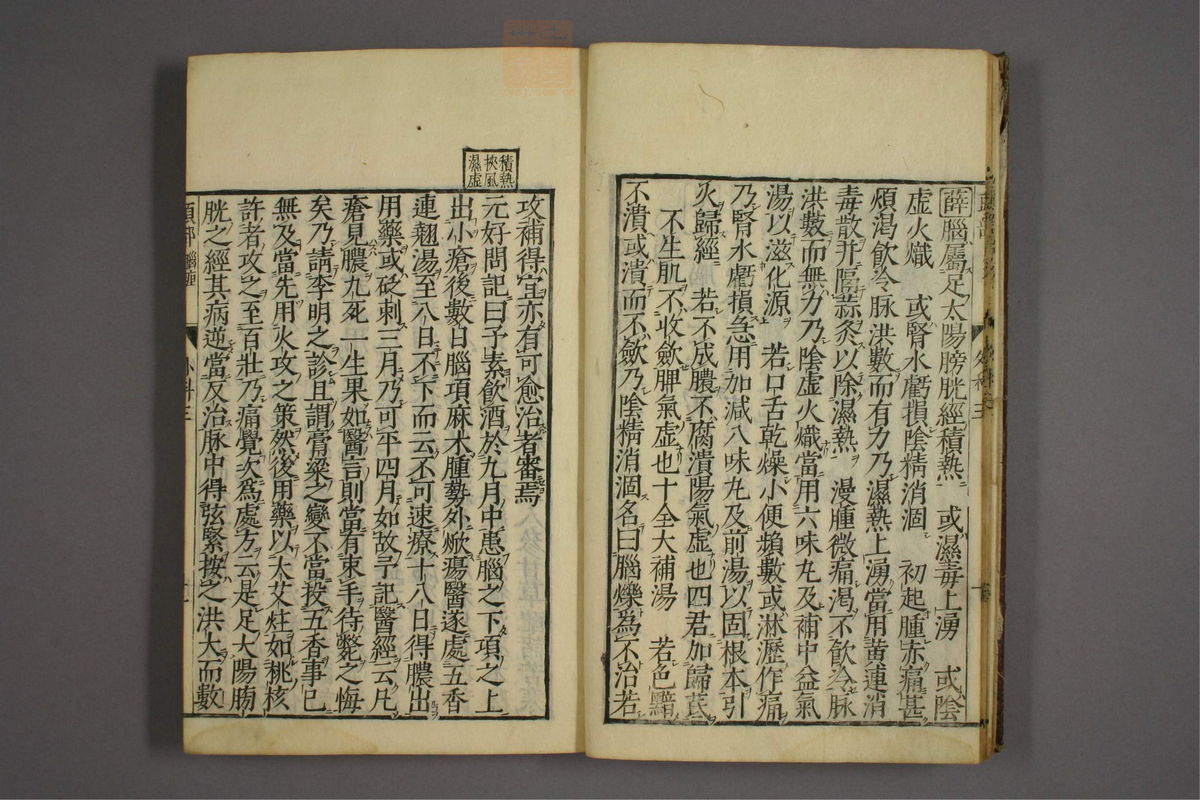 薛腦屬足太陽膀胱經積熱 或濕毒上湧 或陰
虛火熾 或腎水虧損陰精消涸 初起腫赤痛甚
煩渴飲冷脉洪數而有力乃濕熱上湧當用黄連消
毒散并隔蒜灸以除濕熱 漫腫微痛渴不飲冷脉
洪數而無力乃陰虛火熾當用六味丸及補中益氣
湯以滋化源 若口舌乾燥小便頻數或淋瀝作痛
乃腎水虧損急用加減八味丸及前湯以固根本引
火歸經 若不成膿不腐潰陽氣虛也四君加歸茋
不生肌不收歛脾氣虛也十全大補湯 若色黯
不潰或潰而不歛乃陰精消涸名曰腦爍為不治若
積熱
挾風
濕虛
攻補得宜亦有可愈治者審焉
元好問記曰予素飲酒於九月中患腦之下項之上
出小瘡後數日腦項麻木腫勢外焮瘍醫遂處五香
連翹湯至八日不下而云不可速療十八日得膿出
用藥或砭刺三月乃可平四月如故予記醫經云凡
瘡見膿九死一生果如醫言則當有束手待斃之悔
矣乃請李明之診且謂膏粱之變不當投五香事已
無及當先用火攻之策然後用藥以大艾炷如桃核
許者攻之至百壯乃痛覺次爲處方云是足太陽膀
胱之經其病逆當反治脉中得弦緊按之洪大而數
項部 腦疽 外科三